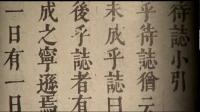 待誌小引
乎待誌猶元
未成乎誌曰
後乎誌者有
成之寧遜焉
一日有一日